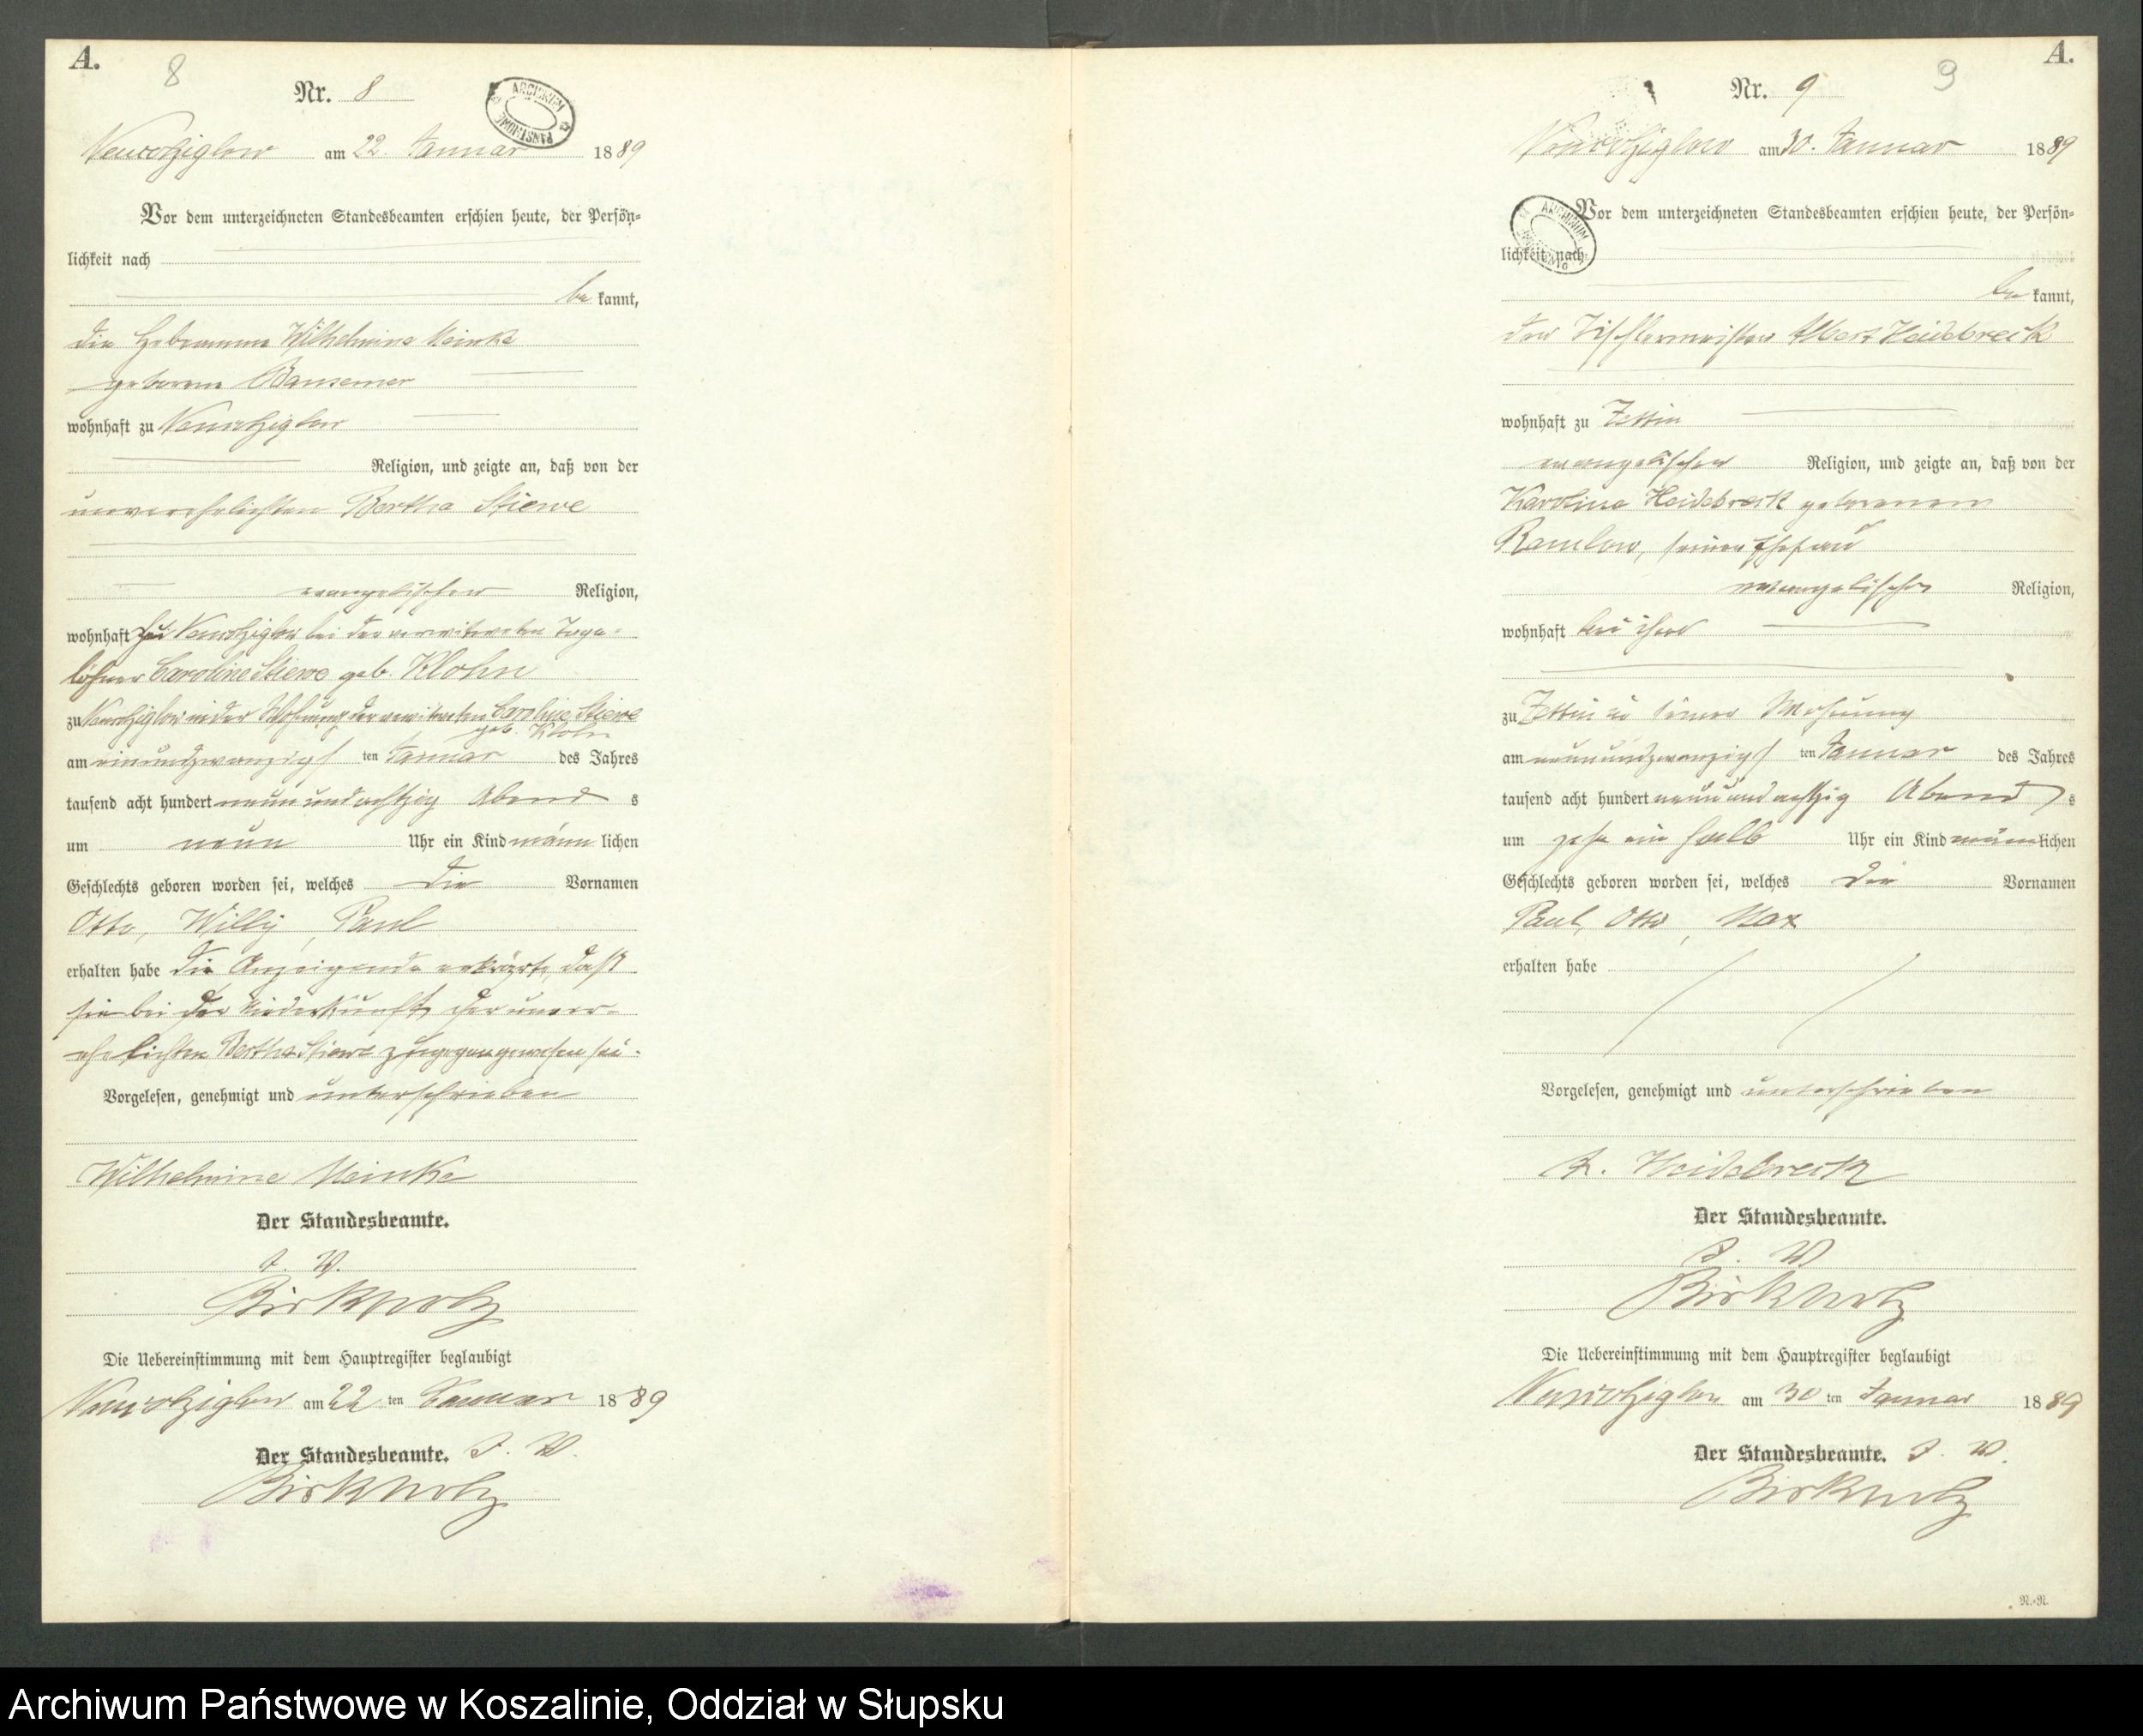 A.
8
Nr. 8
ARCHIWUM PAŃSTWOWE
am 22. Januar 1889
Vor dem unterzeichneten Standesbeamten erschien heute, der Persön-
lichkeit nach
be kannt,
die Hebamme Wilhelmine Meinke
geborene Bansemer
wohnhaft zu
Religion, und zeigte an, daß von der
unverehelichten Bertha Stiewe
evangelischer Religion,
wohnhaft zu bei der verwitweten Tage-
löhner Caroline Stiewe geb. Klohn
zu in der Wohnung der verwitweten Caroline Stiewe
geb. Klohn
am einundzwanzigsten Januar des Jahres
tausend acht hundert neun und achtzig Abends
um neun Uhr ein Kind männlichen
Geschlechts geboren worden sei, welches die Vornamen
Otto, Willy, Paul
erhalten habe die Anzeigende erklärte, daß
sie bei der Niederkunft der unver-
ehelichten Bertha Stiewe zugegen gewesen sei.
Vorgelesen, genehmigt und unterschrieben
Wilhelmine Meinke
Der Standesbeamte.
J. V.
Birkholz
Die Uebereinstimmung mit dem Hauptregister beglaubigt
am 22ten Januar 1889
Der Standesbeamte. J. V.
Birkholz
A.
9
Nr. 9
am 30. Januar 1889
ARCHIWUM
Vor dem unterzeichneten Standesbeamten erschien heute, der Persön-
lichkeit nach
be kannt,
der Tischlermeister Albert Heidebreck
wohnhaft zu Zettin
evangelischer Religion, und zeigte an, daß von der
Karoline Heidebreck geborenen
Ramelow, seiner Ehefrau
evangelischer Religion,
wohnhaft bei ihm
zu Zettin in seiner Wohnung
am neunundzwanzigsten Januar des Jahres
tausend acht hundert neun und achtzig Abends
um zehn ein halb Uhr ein Kind männlichen
Geschlechts geboren worden sei, welches die Vornamen
Paul, Otto, Max
erhalten habe
Vorgelesen, genehmigt und unterschrieben
A. Heidebreck
Der Standesbeamte.
J. V
Birkholz
Die Uebereinstimmung mit dem Hauptregister beglaubigt
am 30ten Januar 1889
Der Standesbeamte. J. V.
Birkholz
N.-N.
Archiwum Państwowe w Koszalinie, Oddział w Słupsku